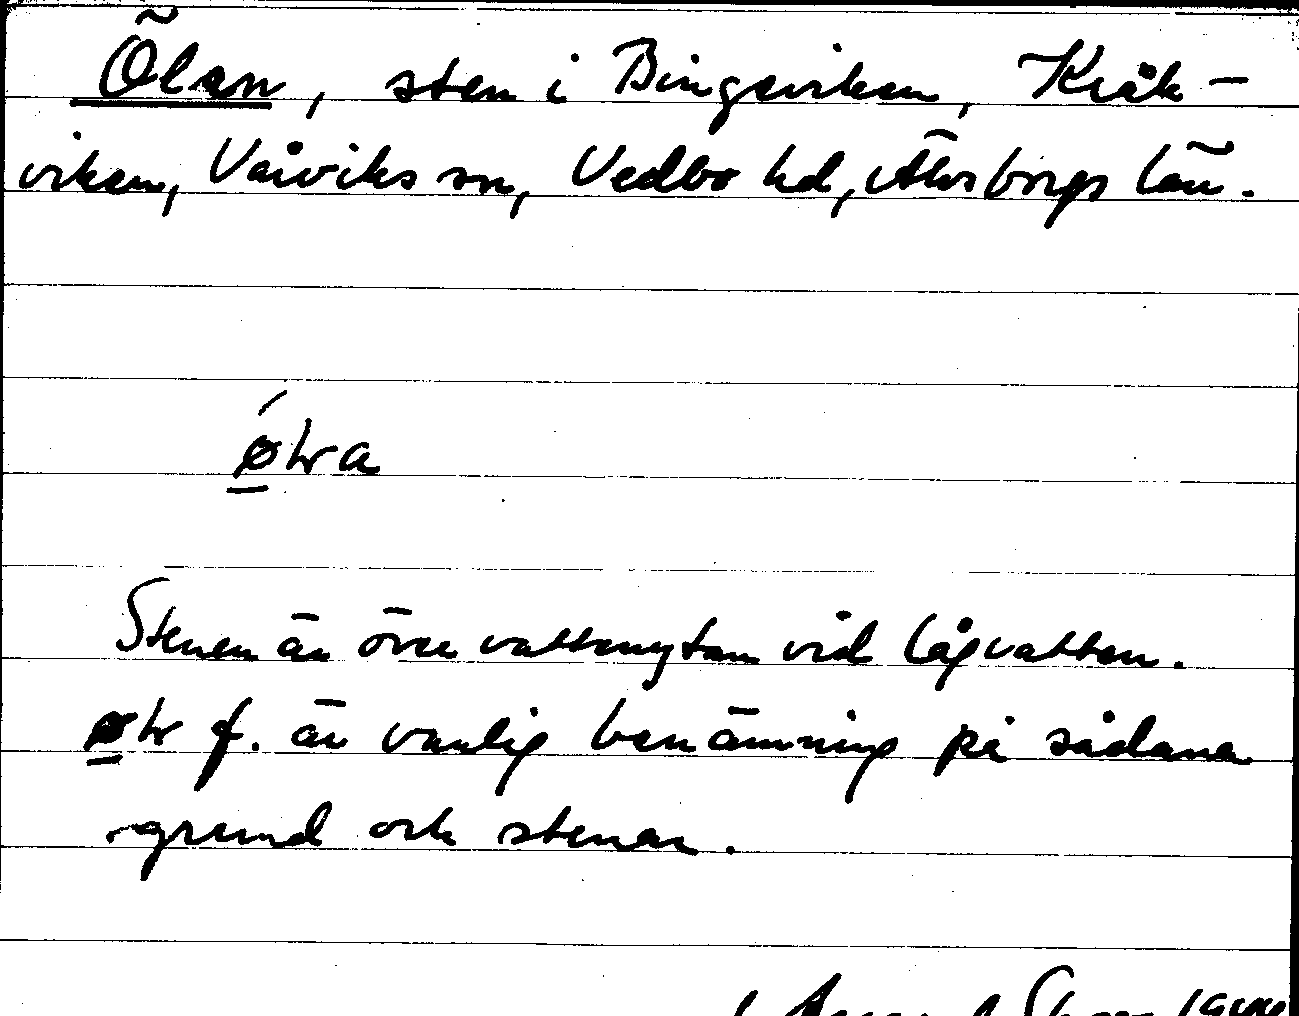 Ölan, sten i Bingsviken, Kråk-
viken, Vårviks sn, Vedbo hd, Älvsborgs län.
Stenen är över vattenytan vid lågvatten.
f. är vanlig benämning på sådana
grund och stenar.